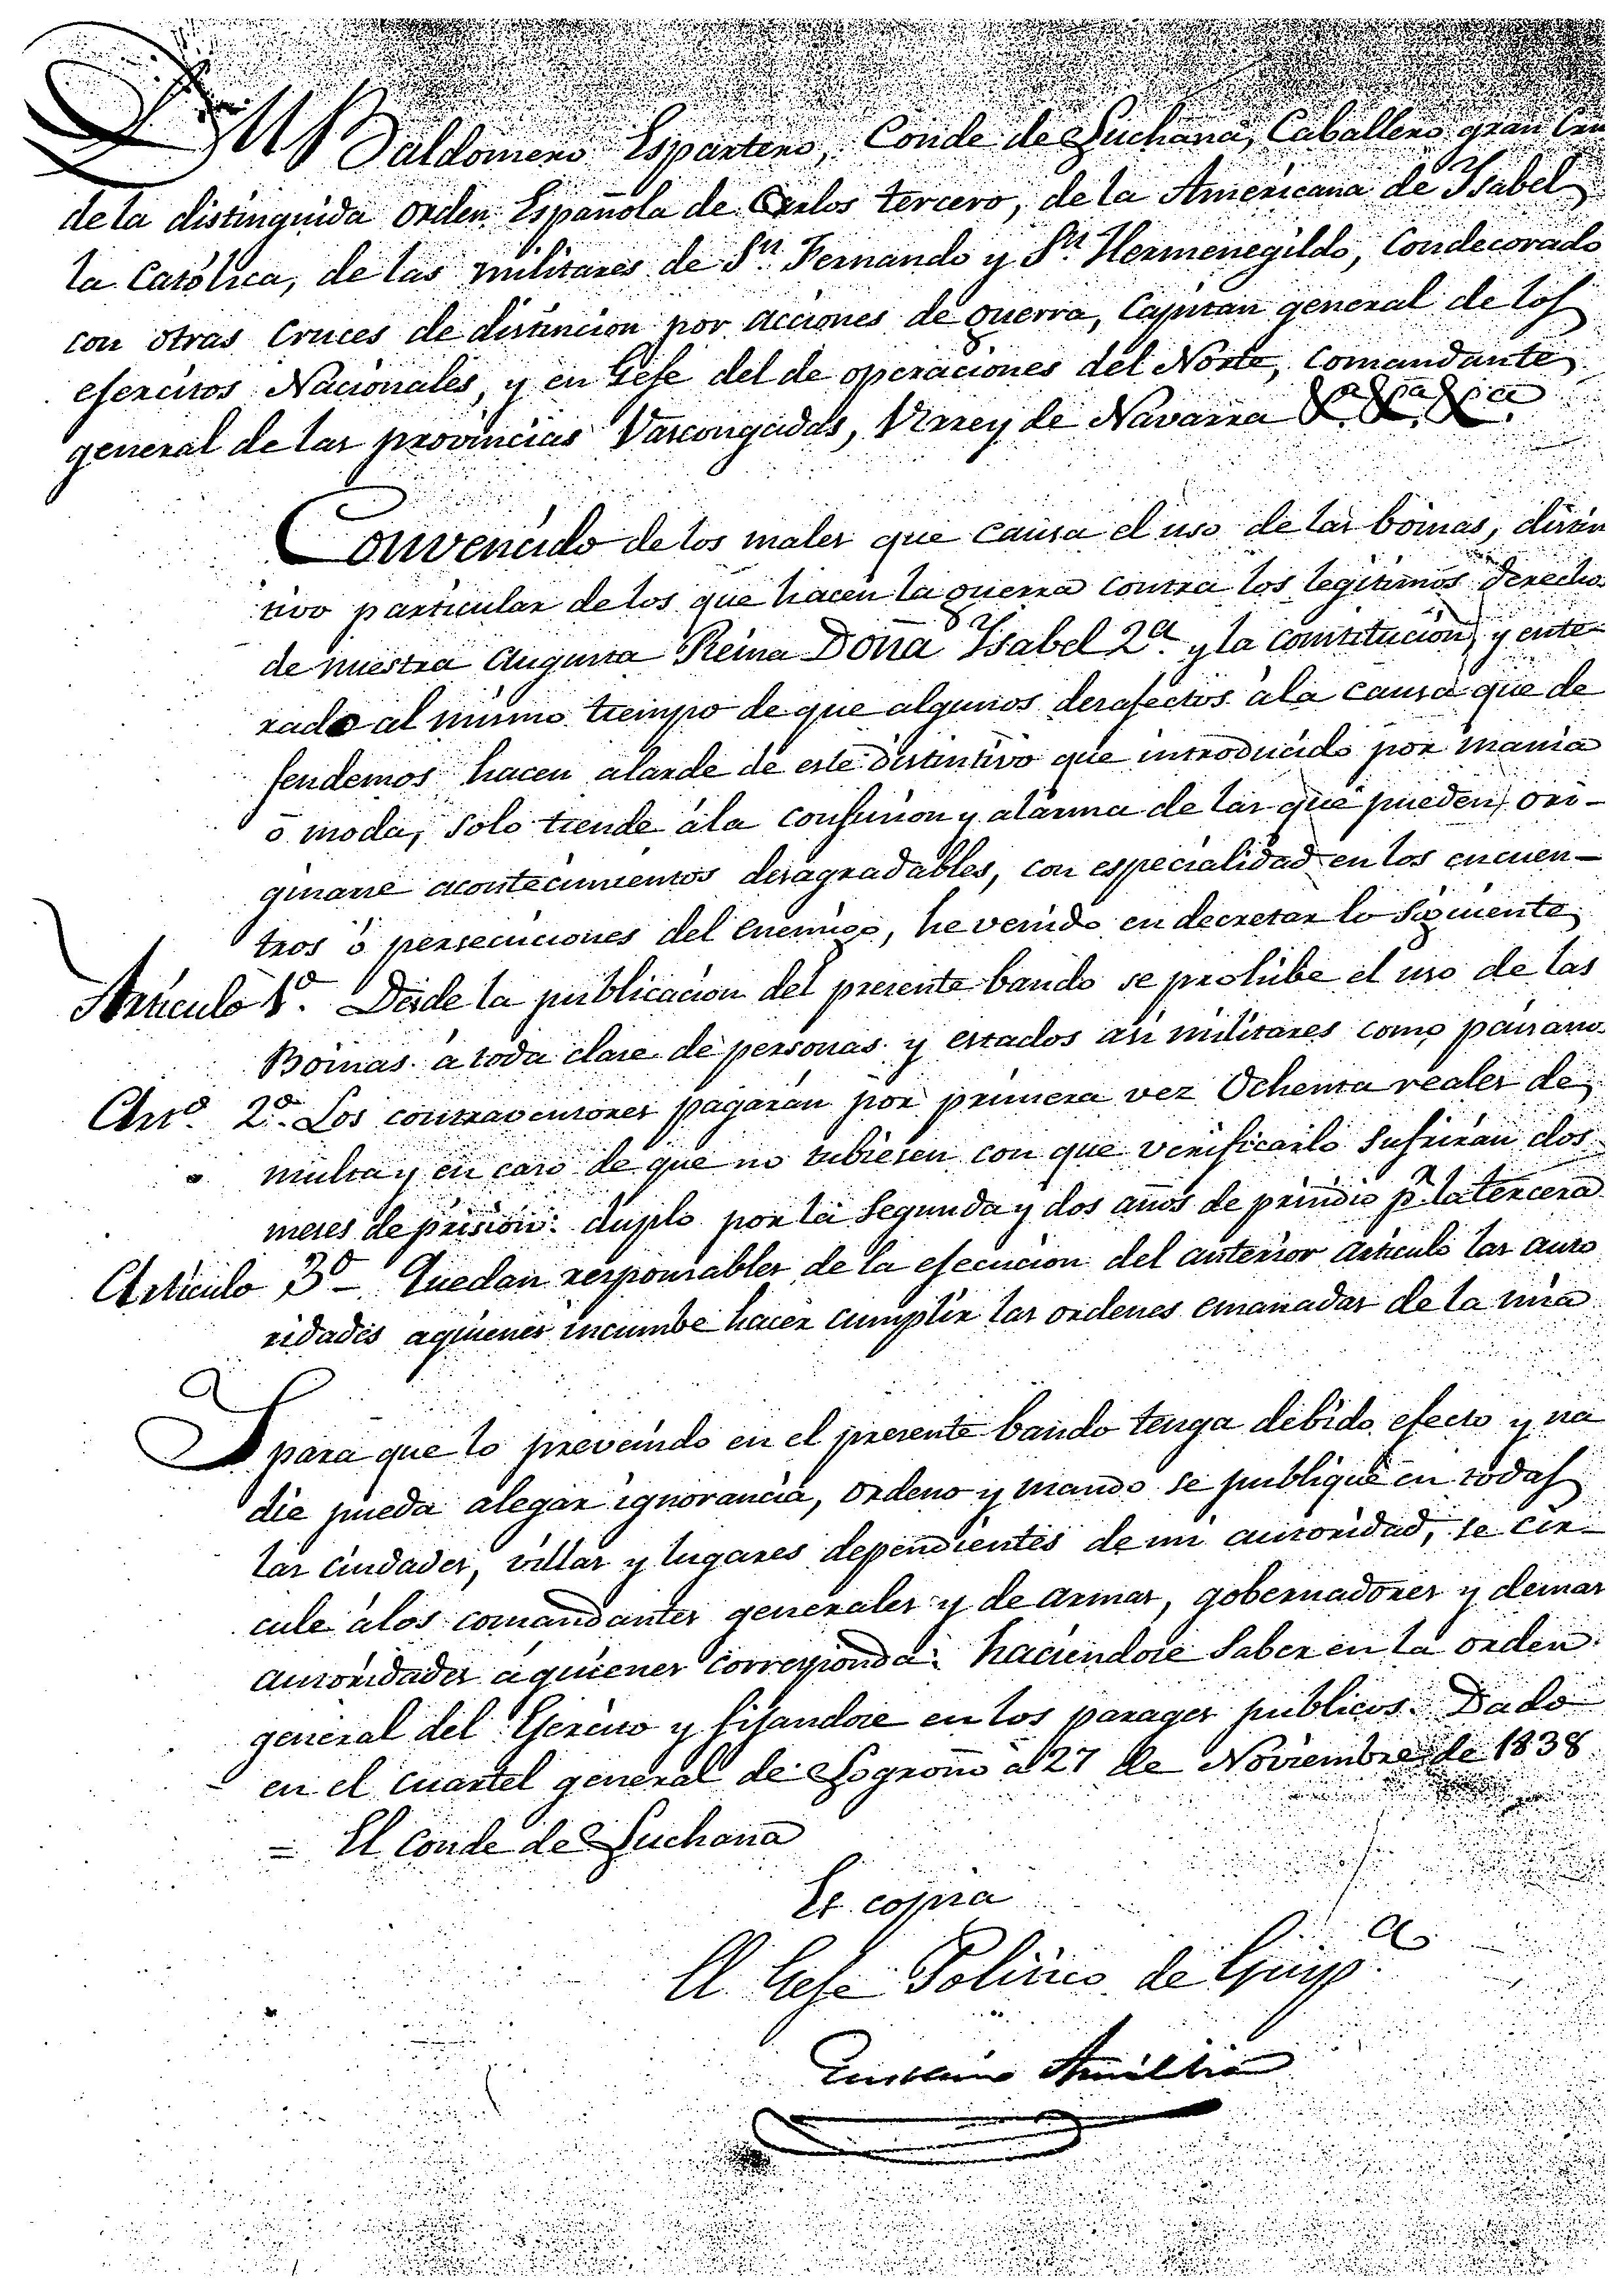 Dn Baldomero Espartero, Conde de Luchana, Caballero gran Cru
de la distinguida orden Española de Carlos tercero, de la Americana de Ysabel
la Católica, de las militares de Sn. Fernando y Sn. Hermenegildo, Condecorado
con otras Cruces de distincion por acciones de guerra, Capitan general de los
ejercitos Nacionales, y en Gefe del de operaciones del Norte, Comandante
general de las provincias Vascongadas, Virrey de Navarra &a. &a. &a.
Convencido de los males que causa el uso de las boinas, distin
tivo particular de los que hacen la guerra contra los legitimos derechos
de nuestra Augusta Reina Doña Ysabel 2a. y la constitucion, y ente-
rado al mismo tiempo de que algunos desafectos á la causa que de
fendemos hacen alarde de este distintivo que introducido por mania
ó moda, solo tiende á la confusion y alarma de las que pueden ori-
ginarse acontecimientos desagradables, con especialidad en los encuen-
tros ó persecuciones del enemigo, he venido en decretar lo siguiente
Artículo 1o. Desde la publicacion del presente bando se prohibe el uso de las
Boinas á toda clase de personas y estados asi militares como paisanos
Arto. 2o. Los contraventores pagarán por primera vez Ochenta reales de
multa y en caso de que no tubiesen con que verificarlo sufriran dos
meses de prision: duplo por la segunda y dos años de presidio pr. la tercera
Artículo 3o- Quedan responsables de la ejecucion del anterior artículo las auto
ridades aquienes incumbe hacer cumplir las ordenes emanadas de la mia
Y para que lo prevenido en el presente bando tenga debido efecto y na
die pueda alegar ignorancia, ordeno y mando se publique en todas
las ciudades, villas y lugares dependientes de mi autoridad, se cir-
cule á los comandantes generales y de armas, gobernadores y demas
autoridades á quienes corresponda: haciendose saber en la orden
general del Ejercito y fijandose en los parages publicos. Dado
en el cuartel general de Logroño á 27 de Noviembre de 1838
= El Conde de Luchana
Es copia
El Gefe Politico de Guipa.
Eustasio Amilibia